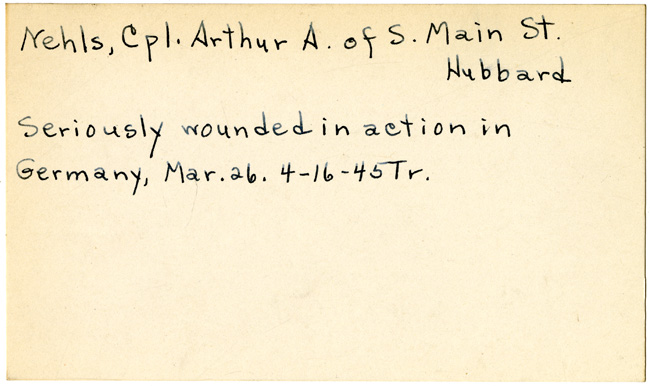 Nehls, Cpl. Arthur A. of S. Main St.
Hubbard
Seriously wounded in action in
Germany, Mar. 26. 4-16-45 Tr.